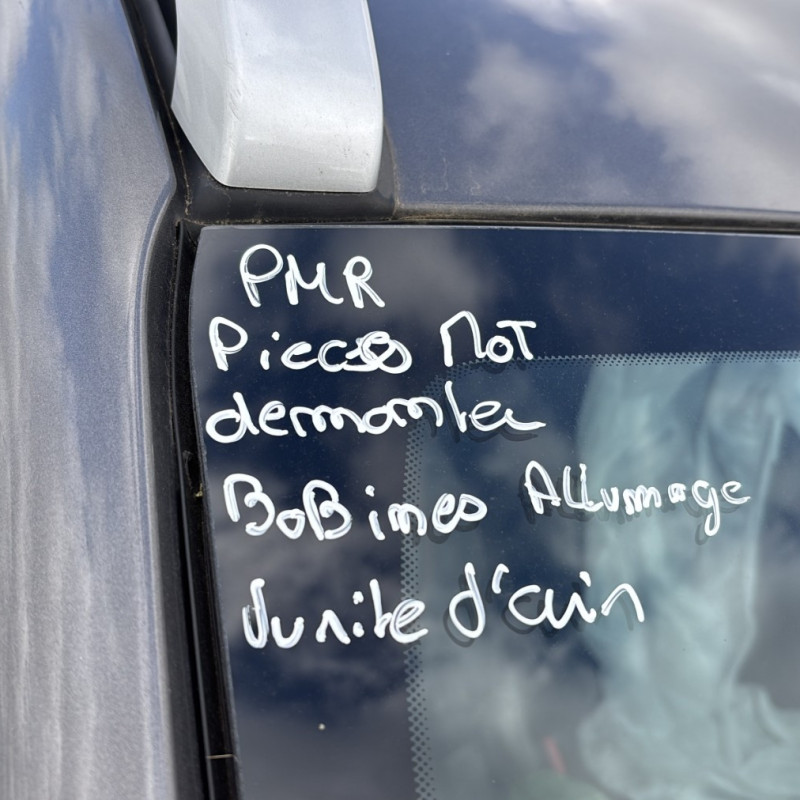 PMR
Pieces MoT
demonter
BoBines Allumage
d'air